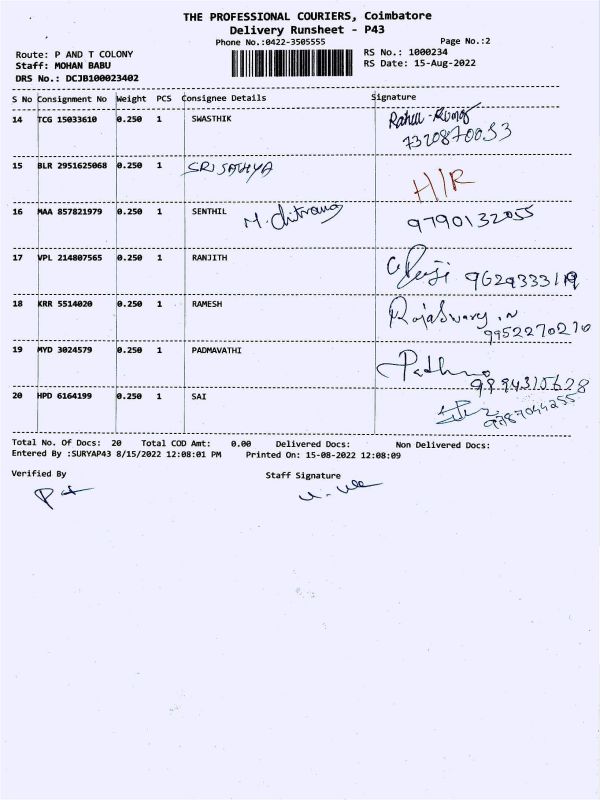 THE PROFESSIONAL COURIERS, Coimbatore
Delivery Runsheet - P43
Phone No.:0422-3505555 Page No.:2
Route: P AND T COLONY RS No.: 1000234
Staff: MOHAN BABU RS Date: 15-Aug-2022
DRS No.: DCJB100023402
S No Consignment No Weight PCS Consignee Details Signature
14 TCG 15033610 0.250 1 SWASTHIK
7320870053
15 BLR 2951625068 0.250 1 SRI SATHYA H/R
16 MAA 857821979 0.250 1 SENTHIL M. Chitrang 9790132055
17 VPL 214807565 0.250 1 RANJITH 9629333119
18 KRR 5514020 0.250 1 RAMESH
9952270210
19 MYD 3024579 0.250 1 PADMAVATHI Padhma
9894315628
20 HPD 6164199 0.250 1 SAI 9787044255
Total No. Of Docs: 20 Total COD Amt: 0.00 Delivered Docs: Non Delivered Docs:
Entered By :SURYAP43 8/15/2022 12:08:01 PM Printed On: 15-08-2022 12:08:09
Verified By Staff Signature